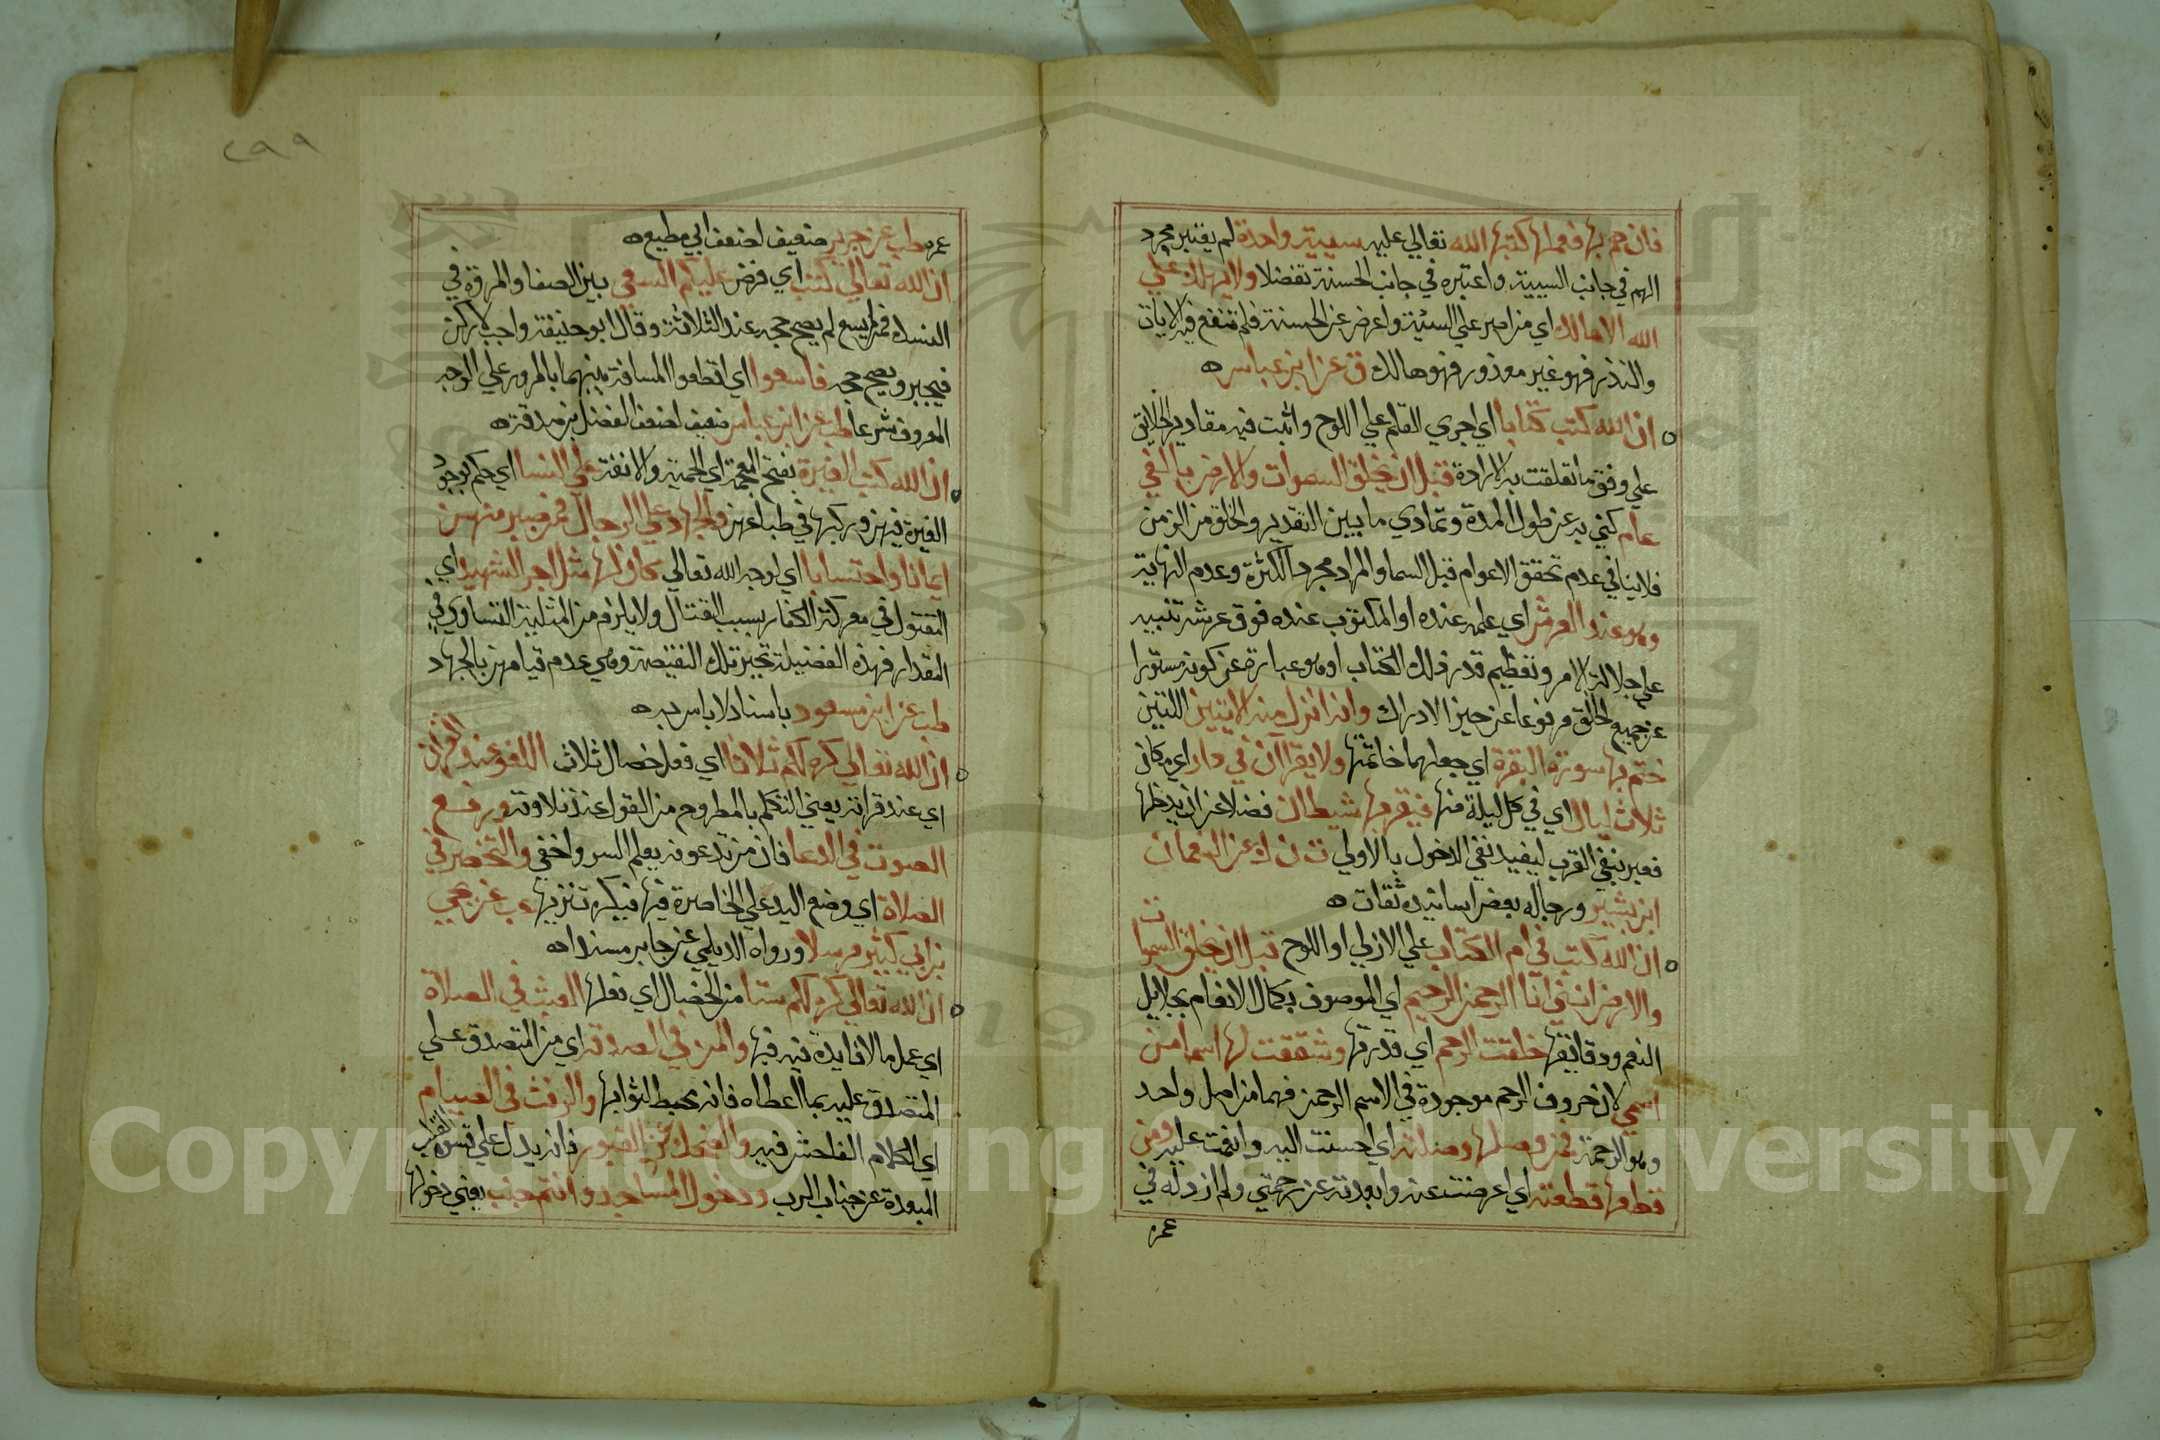 فان هم بها فعملها كتبها الله تعالي عليه سيية واحدة لم يعتبر مجرد
الهم في جانب السيية واعتبره في جانب الحسنة تفضلا ولا يهلك علي
الله الا هالك اي من اصر علي السيئة واعرض عن الحسنة فلم تنفع فيه الايات
والنذر فهو غير معذور فهو هالك ق عن ابن عباس ه
ان الله كتب كتابا اي اجري القلم علي اللوح واثبت فيه مقادير الخلايق
علي وفق ما تعلقت به الارادة قبل ان يخلق السموات والارض بالفي
عام كني به عن طول المدة وتمادي ما بين التقدير والخلق من الزمن
فلا ينافي عدم تحقق الاعوام قبل السما والمراد مجرد الكثرة وعدم النهاية
وهو عند العرش اي علمه عنده او المكتوب عنده فوق عرشه تنبيه
علي جلالة الامر وتعظيم قدر ذلك الكتاب او هو عبارة عن كونه مستورا
عن جميع الخلق مرفوعا عن حيز الادراك وانه انزل منه الايتين اللتين
ختم بها سورة البقرة اي جعلهما خاتمتها ولا يقران في دار اي مكان
ثلاث ليال اي في كل ليلة منها فيقربها شيطان فضلا عن ان يدخلها
فعبر بنفي القرب ليفيد نفي الدخول بالاولي ت ن ك عن النعمان
ابن بشير ورجاله بعض اسانيده ثقات ه
ان الله كتب في ام الكتاب علي الازلي او اللوح قبل ان يخلق السموات
والارض انني انا الرحمن الرحيم اي الموصوف بكمال الانعام بجلايل
النعم ودقائقها خلقت الرحم اي قدرتها وشققت لها اسما من
اسمي لان حروف الرحم موجودة في الاسم الرحمن فهما من اصل واحد
وهو الرحمة فمن وصلها وصلته اي احسنت اليه وانعمت عليه ومن
قطعها قطعته اي اعرضت عنه وابعدته عن رحمتي ولم ازد له في
عمره
٢٩٩
عمره طب عن جرير ضعيف لضعف ابي مطيع ه
ان الله تعالي كتب اي فرض عليكم السعي بين الصفا والمروة في
النسك فمن لم يسع لم يصح حجه عند الثلاثة وقال ابو حنيفة واجب لا ركن
فيجبر ويصح حجه فاسعوا اي اقطعوا المسافة بينهما بالمرور علي الوجه
المعروف شرعا طب عن ابن عباس ضعيف لضعف المفضل بن صدقة ه
ان الله كتب الغيرة بفتح المعجمة اي الحمية والانفة علي النسا اي حكم بوجود
الغيرة فيهن وركبها في طباعهن والجهاد علي الرجال فمن صبر منهن
ايمانا واحتسابا اي لوجه الله تعالي كان لها مثل اجر الشهيد اي
المقتول في معركة الكفار بسبب القتال ولا يلزم من المثلية التساوي في
المقدار فهذه الفضيلة تجبر تلك النقيصة وهي عدم قيامهن بالجهاد
طب عن ابن مسعود باسناد لا باس به ه
ان الله تعالي كره لكم ثلاثا اي فعل خصال ثلاث اللغو عند القران
اي عند قراته يعني التكلم بالمطروح من القول عند تلاوته ورفع
الصوت في الدعا فان من تدعونه يعلم السر واخفي والتخصر في
الصلاة اي وضع اليد علي الخاصرة فيها فيكره تنزيها عب عن يحيي
بن ابي كثير مرسلا ورواه الديلمي عن جابر مسندا ه
ان الله تعالي كره لكم ستا من الخصال اي فعلها العبث في الصلاة
اي عمل ما لا فايدة فيه فيها والمن في الصدقة اي من المتصدق علي
المتصدق عليه بما اعطاه فانه محبط لثوابها والرفث في الصيام
اي الكلام الفاحش فيه والضحك عند القبور فانه يدل علي قسوة القلب
المبعدة عن جناب الرب ودخول المساجد وانتم جنب يعني دخولها